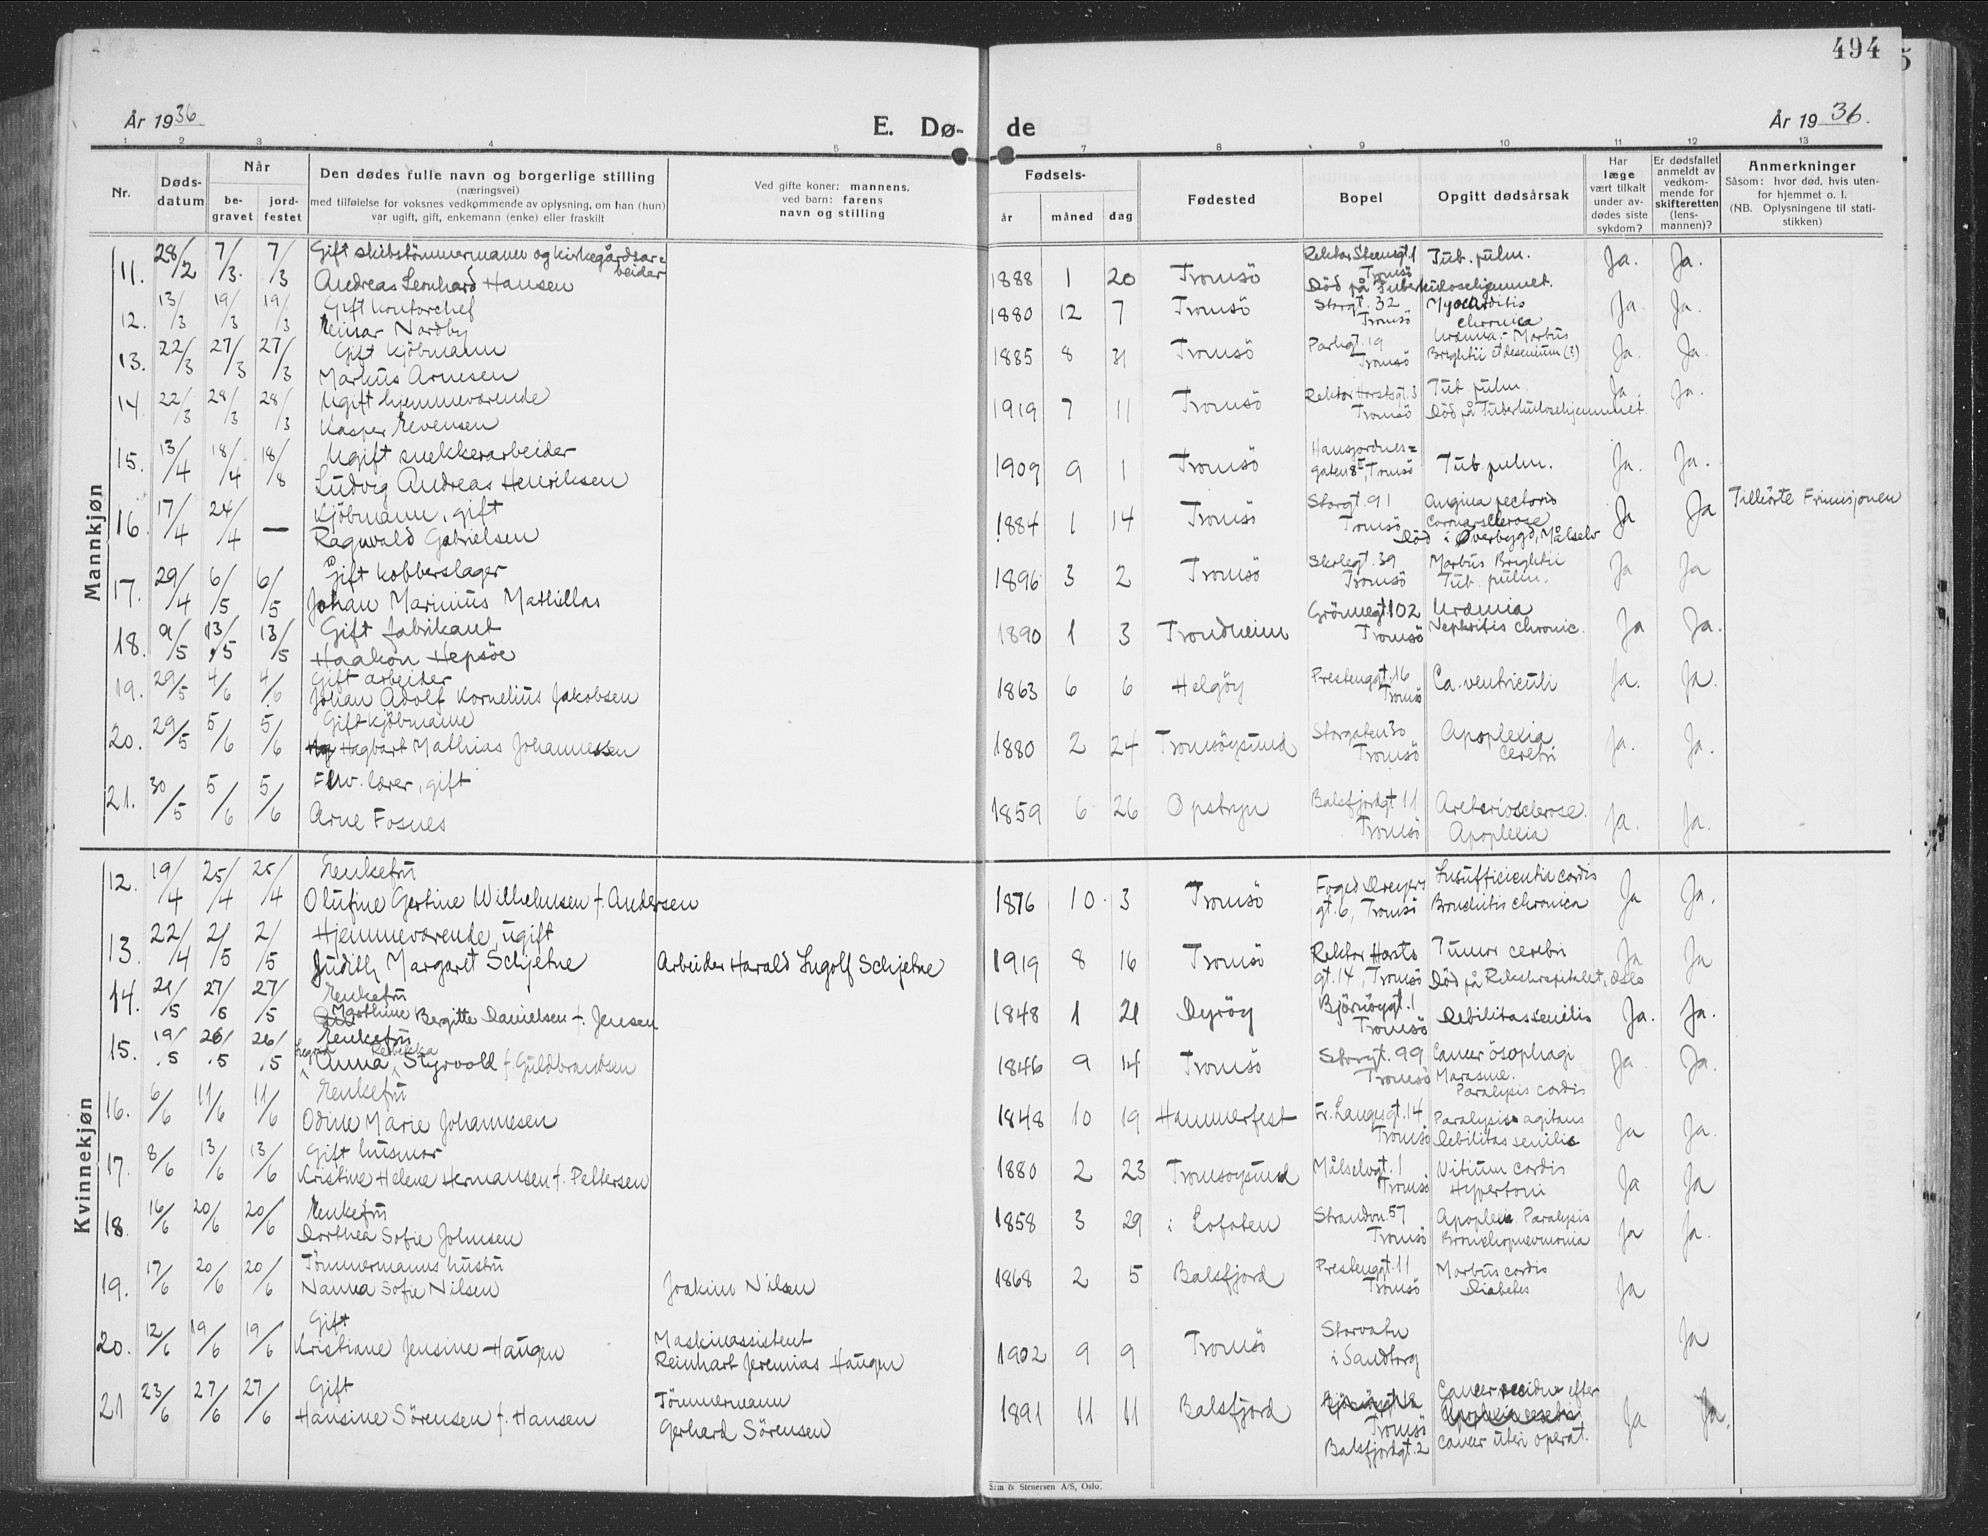 494
År 1936
E. Dø- de
År 1936.
1 2 3 4 5 7 8 9 10 11 12 13
Nr.
Døds-
datum
Når
be-
gravet
jord-
festet
Den dødes fulle navn og borgerlige stilling
(næringsvei)
med tilføielse for voksnes vedkommende av oplysning, om han (hun)
var ugift, gift, enkemann (enke) eller fraskilt
Ved gifte koner: mannens,
ved barn: farens
navn og stilling
Fødsels-
år måned dag
Fødested
Bopel
Opgitt dødsårsak
Har
læge
vært tilkalt
under av-
dødes siste
sykdom?
Er dødsfallet
anmeldt av
vedkom-
mende for
skifteretten
(lens-
mannen)?
Anmerkninger
Såsom: hvor død, hvis uten-
for hjemmet o. l.
(NB. Oplysningene til stati-
stikken)
Mannkjøn
11. 28/2 7/3. 7/3 Gift skibstömmermann og kirkegårdsar=
beider
Andreas Leonhard Hansen 1888 1 20 Tromsö Rektor Steensgt. 1 Tromsö Tub. pulm. Ja. Ja.
Död på Tuberkulosehjemmet.
12. 13/3 19/3 19/3 Gift kontorchef
Einar Nordby 1880 12 7 Tromsö Storgt. 32 Tromsö Myocarditis chronica Ja. Ja.
13. 22/3 27/3 27/3 Gift kjöbmann
Markus Arnesen 1885 8 31 Tromsö Parkgt. 19 Tromsö Urämia - Morbus Brightii Ja. Ja.
14. 22/3 28/3 28/3 Ugift hjemmeværende
Kasper Evensen 1919 7 11 Tromsö Rektor Horstsgt. 3 Tromsö Tub. pulm. Ja. Ja.
Död på Tuberkulosehjemmet.
15. 13/4 18/4 18/8 Ugift snekkerarbeider
Ludvig Andreas Henriksen 1909 9 1 Tromsö Hansjordnes=
gaten 8, Tromsö Tub. pulm. Ja. Ja.
16. 17/4 24/4 — Kjöbmann, gift
Ragnvald Gabrielsen 1884 1 14 Tromsö Storgt. 91 Tromsö Angina pectoris Ja Ja Tillörte Frimisjonen
Död i Øverbygd, Målselv
17. 29/4 6/5 6/5 Gift kobberslager
Johan Marinius Mathillas 1896 3 2 Tromsö Skolegt. 39 Tromsö Morbus Brightii
Tub. pulm. Ja Ja
18. 9/5 13/5 13/5 Gift fabrikant
Haakon Hepsöe 1890 1 3 Trondheim Grönnegt. 102 Tromsö Urämia
Nephritis chronic. Ja Ja.
19. 29/5 4/6 4/6 Gift arbeider
Johan Adolf Kornelius Jakobsen 1863 6 6 Helgöy Prestenggt. 16 Tromsö Ca. ventriculi Ja. Ja.
20. 29/5 5/6 5/6 Gift kjöbmann
Hagbart Mathias Johannessen 1880 2 24 Tromsöysund Storgaten 30 Tromsö Apoplexia
cerebri Ja. Ja.
21. 30/5 5/6 5/6 Fhv. lærer, gift
Arne Fosnes 1859 6 26 Opstryn Balsfjordgt. 11 Tromsö Arteriosclerose.
Apoplexia Ja. Ja.
Kvinnekjøn
12. 19/4 25/4 25/4 Enkefru
Olufine Gertine Wilhelmsen f. Andersen 1876 10 3 Tromsö Foged Dreyers
gt. 6, Tromsö Insufficientia cordis
Bronchitis chronica Ja Ja.
13. 22/4 2/5 2/5 Hjemmeværende, ugift
Judith Margaret Schjetne Arbeider Harald Ingolf Schjetne 1919 8 16 Tromsö Rektor Horsts
gt. 14, Tromsö Tumor cerebri Ja Ja
Död på Rikshospitalet, Oslo
14. 21/5 27/5 27/5 Enkefru
Marthine Bergitte Danielsen f. Jensen 1848 1 21 Dyröy Björnöygt. 1
Tromsö Debilitas senilis Ja. Ja.
15. 19/5 26/5 26/5 Enkefru
Anna Rebekka Styrvold f. Guldbrandsen 1846 9 14 Tromsö Storgt. 99
Tromsö Cancer ösophagi
Marasme.
Paralysis cordis Ja. Ja.
16. 6/6 11/6 11/6 Enkefru
Odine Marie Johannesen 1848 10 19 Hammerfest Fr. Langesgt. 14
Tromsö Paralysis agitans
Debilitas senilis Ja Ja.
17. 8/6 13/6 13/6 Gift husmor
Kristine Helene Hermansen f. Pettersen 1880 2 23 Tromsöysund Målselvgt. 1
Tromsö Vitium cordis
Hypertoni Ja Ja
18. 16/6 20/6 20/6 Enkefru
Dorthea Sofie Johnsen 1858 3 29 i Lofoten Strandvn. 57
Tromsö Apoplexia Paralysis
Bronchopneumonia Ja Ja.
19. 17/6 20/6 20/6 Tömmermanns hustru
Nanna Sofie Nilsen Joakim Nilsen 1868 2 5 Balsfjord Prestenggt. 11
Tromsö Morbus cordis
Diabetes Ja
20. 12/6 19/6 19/6 Gift
Kristiane Jensine Haugen Maskinassistent
Reinhart Jeremias Haugen 1902 9 9 Tromsö Storvatn
i Sandtorg Ja
21 23/6 27/6 27/6 Gift
Hansine Sörensen f. Hansen Tömmermann
Gerhard Sörensen 1891 11 11 Balsfjord Tromsö
Balsfjordgt. 2 Cancer residiv efter
cancer uteri operat. Ja Ja.
& Stenersen A/S, Oslo.